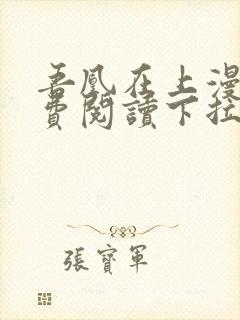 吾凰在上漫
費閱讀下拉
張寶軍